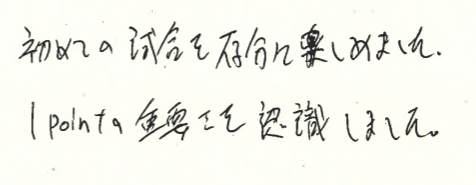 初めての試合を存分に楽しめました。
1pointの重要さを認識しました。